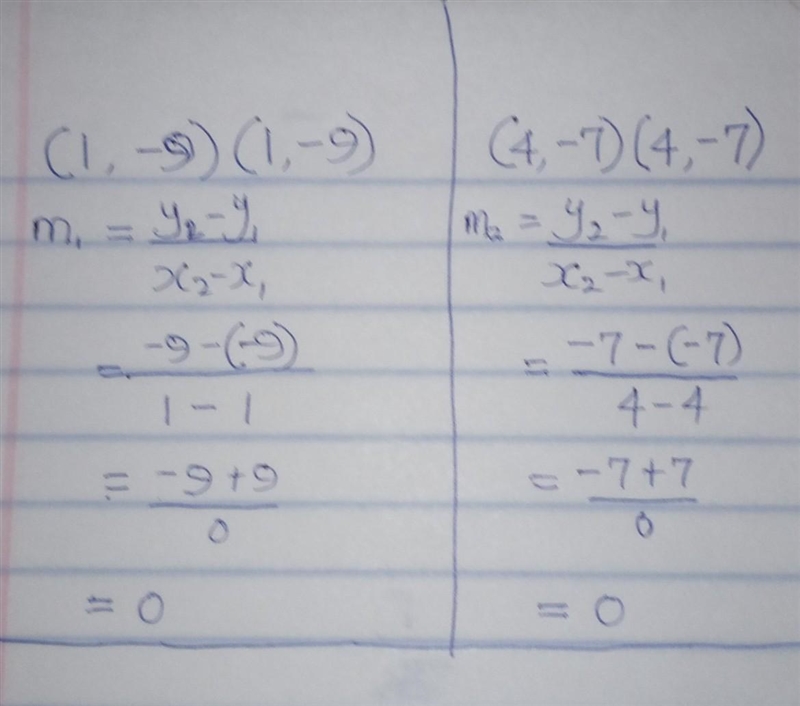 (1, -9) (1, -9)
m₁ = y₂-y₁
x₂-x₁
= -9-(-9)
1 - 1
= -9+9
0
= 0
(4, -7) (4, -7)
m₂ = y₂-y₁
x₂-x₁
= -7-(-7)
4-4
= -7+7
0
= 0